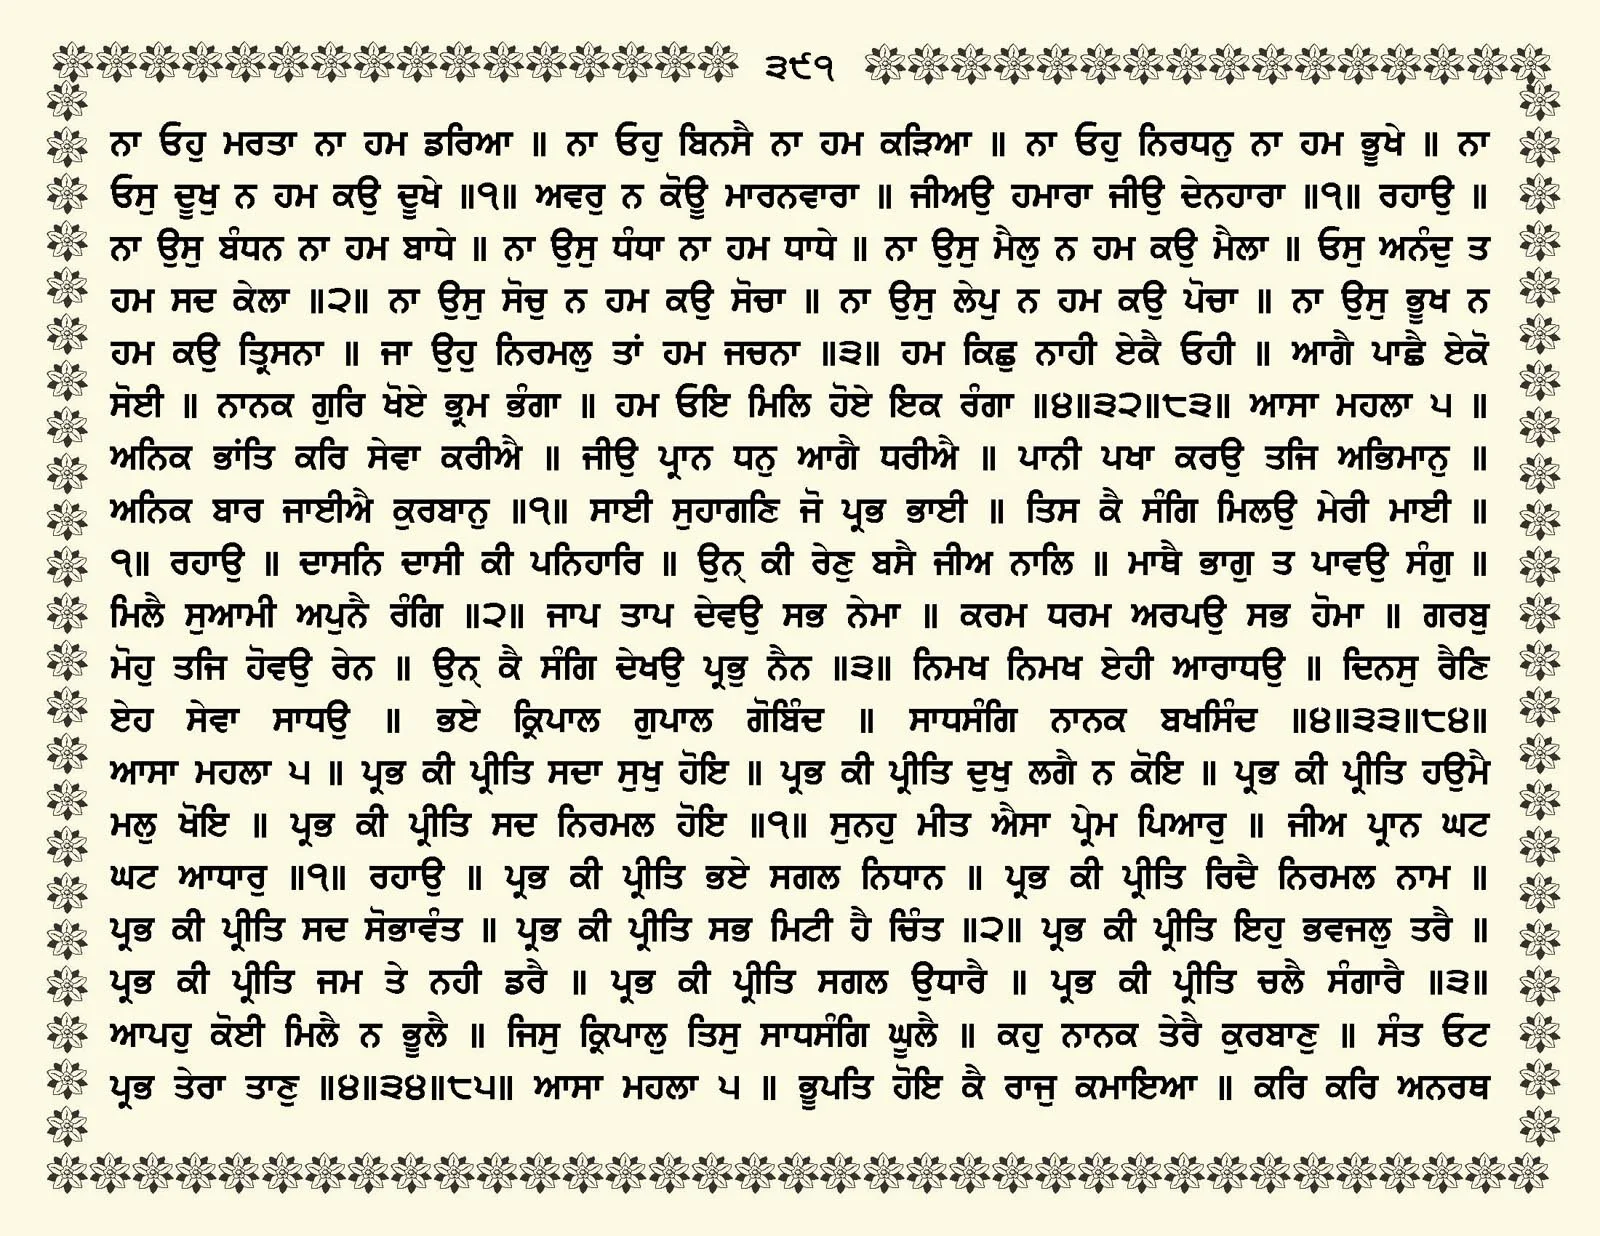 ੩੯੧
ਨਾ ਓਹੁ ਮਰਤਾ ਨਾ ਹਮ ਡਰਿਆ ॥ ਨਾ ਓਹੁ ਬਿਨਸੈ ਨਾ ਹਮ ਕੜਿਆ ॥ ਨਾ ਓਹੁ ਨਿਰਧਨੁ ਨਾ ਹਮ ਭੂਖੇ ॥ ਨਾ
ਓਸੁ ਦੂਖੁ ਨ ਹਮ ਕਉ ਦੂਖੇ ॥੧॥ ਅਵਰੁ ਨ ਕੋਊ ਮਾਰਨਵਾਰਾ ॥ ਜੀਅਉ ਹਮਾਰਾ ਜੀਉ ਦੇਨਹਾਰਾ ॥੧॥ ਰਹਾਉ ॥
ਨਾ ਉਸੁ ਬੰਧਨ ਨਾ ਹਮ ਬਾਧੇ ॥ ਨਾ ਉਸੁ ਧੰਧਾ ਨਾ ਹਮ ਧਾਧੇ ॥ ਨਾ ਉਸੁ ਮੈਲੁ ਨ ਹਮ ਕਉ ਮੈਲਾ ॥ ਓਸੁ ਅਨੰਦੁ ਤ
ਹਮ ਸਦ ਕੇਲਾ ॥੨॥ ਨਾ ਉਸੁ ਸੋਚੁ ਨ ਹਮ ਕਉ ਸੋਚਾ ॥ ਨਾ ਉਸੁ ਲੇਪੁ ਨ ਹਮ ਕਉ ਪੋਚਾ ॥ ਨਾ ਉਸੁ ਭੂਖ ਨ
ਹਮ ਕਉ ਤ੍ਰਿਸਨਾ ॥ ਜਾ ਉਹੁ ਨਿਰਮਲੁ ਤਾਂ ਹਮ ਜਚਨਾ ॥੩॥ ਹਮ ਕਿਛੁ ਨਾਹੀ ਏਕੈ ਓਹੀ ॥ ਆਗੈ ਪਾਛੈ ਏਕੋ
ਸੋਈ ॥ ਨਾਨਕ ਗੁਰਿ ਖੋਏ ਭ੍ਰਮ ਭੰਗਾ ॥ ਹਮ ਓਇ ਮਿਲਿ ਹੋਏ ਇਕ ਰੰਗਾ ॥੪॥੩੨॥੮੩॥ ਆਸਾ ਮਹਲਾ ੫ ॥
ਅਨਿਕ ਭਾਂਤਿ ਕਰਿ ਸੇਵਾ ਕਰੀਐ ॥ ਜੀਉ ਪ੍ਰਾਨ ਧਨੁ ਆਗੈ ਧਰੀਐ ॥ ਪਾਨੀ ਪਖਾ ਕਰਉ ਤਜਿ ਅਭਿਮਾਨੁ ॥
ਅਨਿਕ ਬਾਰ ਜਾਈਐ ਕੁਰਬਾਨੁ ॥੧॥ ਸਾਈ ਸੁਹਾਗਣਿ ਜੋ ਪ੍ਰਭ ਭਾਈ ॥ ਤਿਸ ਕੈ ਸੰਗਿ ਮਿਲਉ ਮੇਰੀ ਮਾਈ ॥
੧॥ ਰਹਾਉ ॥ ਦਾਸਨਿ ਦਾਸੀ ਕੀ ਪਨਿਹਾਰਿ ॥ ਉਨ੍ ਕੀ ਰੇਣੁ ਬਸੈ ਜੀਅ ਨਾਲਿ ॥ ਮਾਥੈ ਭਾਗੁ ਤ ਪਾਵਉ ਸੰਗੁ ॥
ਮਿਲੈ ਸੁਆਮੀ ਅਪੁਨੈ ਰੰਗਿ ॥੨॥ ਜਾਪ ਤਾਪ ਦੇਵਉ ਸਭ ਨੇਮਾ ॥ ਕਰਮ ਧਰਮ ਅਰਪਉ ਸਭ ਹੋਮਾ ॥ ਗਰਬੁ
ਮੋਹੁ ਤਜਿ ਹੋਵਉ ਰੇਨ ॥ ਉਨ੍ ਕੈ ਸੰਗਿ ਦੇਖਉ ਪ੍ਰਭੁ ਨੈਨ ॥੩॥ ਨਿਮਖ ਨਿਮਖ ਏਹੀ ਆਰਾਧਉ ॥ ਦਿਨਸੁ ਰੈਣਿ
ਏਹ ਸੇਵਾ ਸਾਧਉ ॥ ਭਏ ਕ੍ਰਿਪਾਲ ਗੁਪਾਲ ਗੋਬਿੰਦ ॥ ਸਾਧਸੰਗਿ ਨਾਨਕ ਬਖਸਿੰਦ ॥੪॥੩੩॥੮੪॥
ਆਸਾ ਮਹਲਾ ੫ ॥ ਪ੍ਰਭ ਕੀ ਪ੍ਰੀਤਿ ਸਦਾ ਸੁਖੁ ਹੋਇ ॥ ਪ੍ਰਭ ਕੀ ਪ੍ਰੀਤਿ ਦੁਖੁ ਲਗੈ ਨ ਕੋਇ ॥ ਪ੍ਰਭ ਕੀ ਪ੍ਰੀਤਿ ਹਉਮੈ
ਮਲੁ ਖੋਇ ॥ ਪ੍ਰਭ ਕੀ ਪ੍ਰੀਤਿ ਸਦ ਨਿਰਮਲ ਹੋਇ ॥੧॥ ਸੁਨਹੁ ਮੀਤ ਐਸਾ ਪ੍ਰੇਮ ਪਿਆਰੁ ॥ ਜੀਅ ਪ੍ਰਾਨ ਘਟ
ਘਟ ਆਧਾਰੁ ॥੧॥ ਰਹਾਉ ॥ ਪ੍ਰਭ ਕੀ ਪ੍ਰੀਤਿ ਭਏ ਸਗਲ ਨਿਧਾਨ ॥ ਪ੍ਰਭ ਕੀ ਪ੍ਰੀਤਿ ਰਿਦੈ ਨਿਰਮਲ ਨਾਮ ॥
ਪ੍ਰਭ ਕੀ ਪ੍ਰੀਤਿ ਸਦ ਸੋਭਾਵੰਤ ॥ ਪ੍ਰਭ ਕੀ ਪ੍ਰੀਤਿ ਸਭ ਮਿਟੀ ਹੈ ਚਿੰਤ ॥੨॥ ਪ੍ਰਭ ਕੀ ਪ੍ਰੀਤਿ ਇਹੁ ਭਵਜਲੁ ਤਰੈ ॥
ਪ੍ਰਭ ਕੀ ਪ੍ਰੀਤਿ ਜਮ ਤੇ ਨਹੀ ਡਰੈ ॥ ਪ੍ਰਭ ਕੀ ਪ੍ਰੀਤਿ ਸਗਲ ਉਧਾਰੈ ॥ ਪ੍ਰਭ ਕੀ ਪ੍ਰੀਤਿ ਚਲੈ ਸੰਗਾਰੈ ॥੩॥
ਆਪਹੁ ਕੋਈ ਮਿਲੈ ਨ ਭੂਲੈ ॥ ਜਿਸੁ ਕ੍ਰਿਪਾਲੁ ਤਿਸੁ ਸਾਧਸੰਗਿ ਘੂਲੈ ॥ ਕਹੁ ਨਾਨਕ ਤੇਰੈ ਕੁਰਬਾਣੁ ॥ ਸੰਤ ਓਟ
ਪ੍ਰਭ ਤੇਰਾ ਤਾਣੁ ॥੪॥੩੪॥੮੫॥ ਆਸਾ ਮਹਲਾ ੫ ॥ ਭੂਪਤਿ ਹੋਇ ਕੈ ਰਾਜੁ ਕਮਾਇਆ ॥ ਕਰਿ ਕਰਿ ਅਨਰਥ